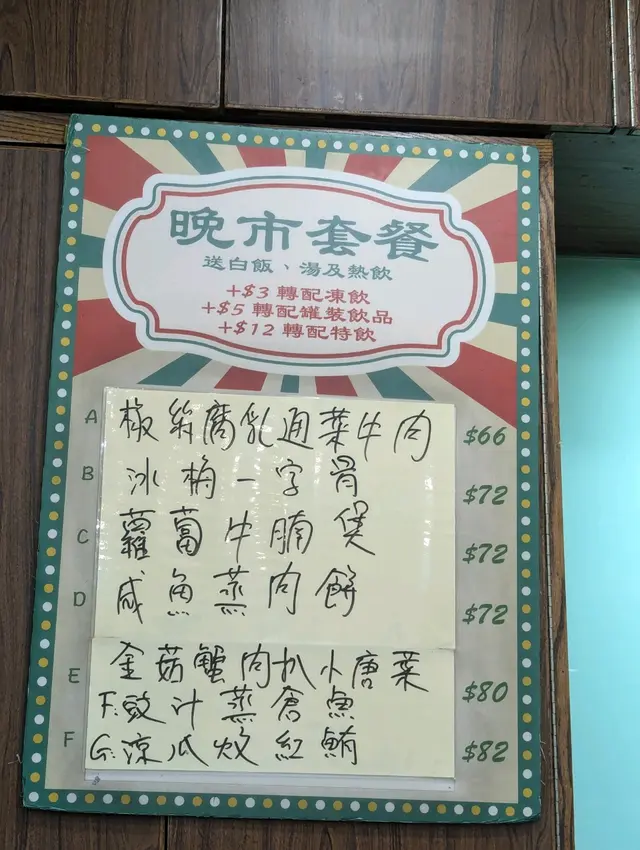 晚市套餐
送白飯、湯及熱飲
+$3 轉配凍飲
+$5 轉配罐裝飲品
+$12 轉配特飲
A 椒絲腐乳通菜牛肉 $66
B 冰梅一字骨 $72
C 蘿蔔牛腩煲 $72
D 咸魚蒸肉餅 $72
E 金菇蟹肉扒小唐菜 $80
F:豉汁蒸倉魚
F G:涼瓜炆紅鮪 $82